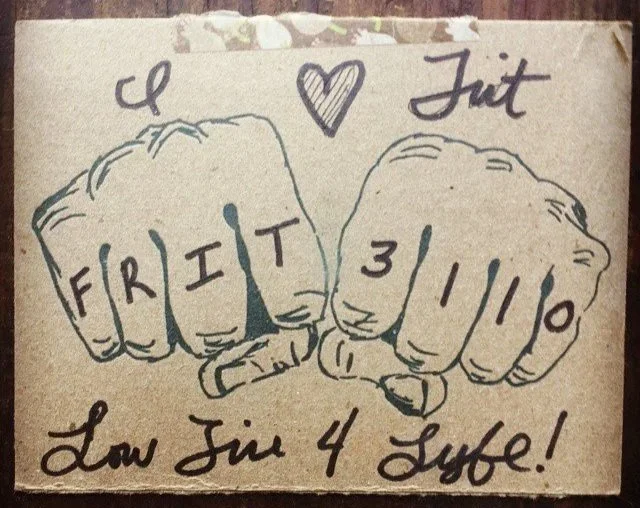 I ♥ Frit
FRIT 3110
Low Fire 4 Lyfe!